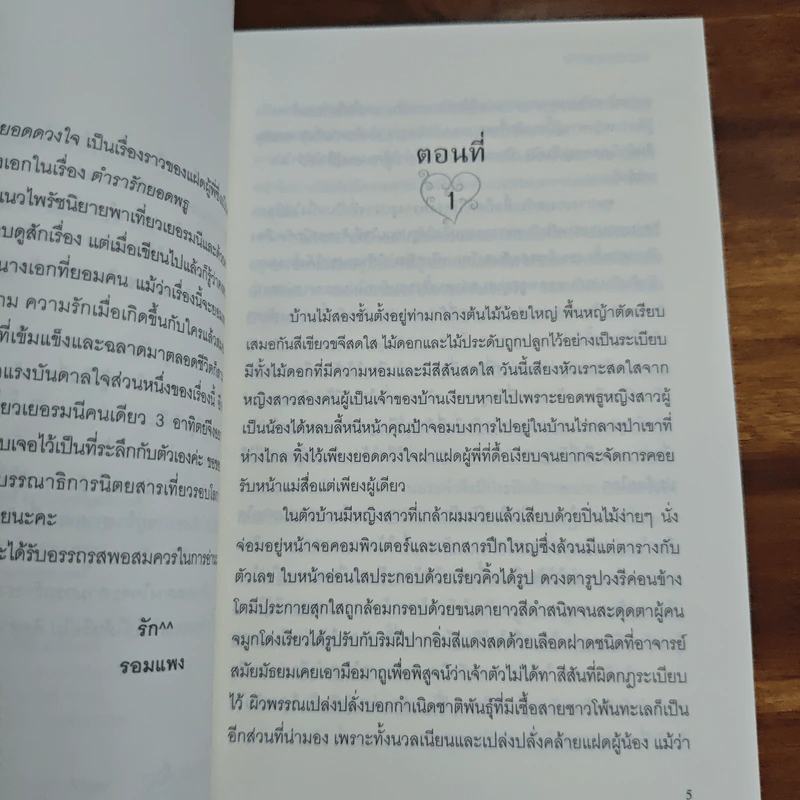 ยอดดวงใจ เป็นเรื่องราวของแฝดผู้พี่ซึ่งเป็น
เอกในเรื่อง ตำรารักยอดพธู
แนวไพรัชนิยายพาเที่ยวเยอรมนีและ
บดูสักเรื่อง แต่เมื่อเขียนไปแล้วก็รู้
นางเอกที่ยอมคน แม้ว่าเรื่องนี้จะ
ความรักเมื่อเกิดขึ้นกับใครแล้ว
ที่เข้มแข็งและฉลาดมาตลอดชีวิต
แรงบันดาลใจส่วนหนึ่งของเรื่องนี้
ยวเยอรมนีคนเดียว 3 อาทิตย์
บเจอไว้เป็นที่ระลึกกับตัวเองค่ะ
บรรณาธิการนิตยสารเที่ยวรอบโลก
ยนะคะ
ะได้รับอรรถรสพอสมควรในการอ่าน
รัก^^
รอมแพง
ตอนที่
1
บ้านไม้สองชั้นตั้งอยู่ท่ามกลางต้นไม้น้อยใหญ่ พื้นหญ้าตัดเรียบ
เสมอกันสีเขียวขจีสดใส ไม้ดอกและไม้ประดับถูกปลูกไว้อย่างเป็นระเบียบ
มีทั้งไม้ดอกที่มีความหอมและมีสีสันสดใส วันนี้เสียงหัวเราะสดใสจาก
หญิงสาวสองคนผู้เป็นเจ้าของบ้านเงียบหายไปเพราะยอดพธูหญิงสาวผู้
เป็นน้องได้หลบลี้หนีหน้าคุณป้าจอมบงการไปอยู่ในบ้านไร่กลางป่าเขาที่
ห่างไกล ทิ้งไว้เพียงยอดดวงใจฝาแฝดผู้พี่ที่ดื้อเงียบจนยากจะจัดการคอย
รับหน้าแม่สื่อแต่เพียงผู้เดียว
ในตัวบ้านมีหญิงสาวที่เกล้าผมมวยแล้วเสียบด้วยปิ่นไม้ง่ายๆ นั่ง
จ่อมอยู่หน้าจอคอมพิวเตอร์และเอกสารปึกใหญ่ซึ่งล้วนมีแต่ตารางกับ
ตัวเลข ใบหน้าอ่อนใสประกอบด้วยเรียวคิ้วได้รูป ดวงตารูปวงรีค่อนข้าง
โตมีประกายสุกใสถูกล้อมกรอบด้วยขนตายาวสีดำสนิทจนสะดุดตาผู้คน
จมูกโด่งเรียวได้รูปรับกับริมฝีปากอิ่มสีแดงสดด้วยเลือดฝาดชนิดที่อาจารย์
สมัยมัธยมเคยเอามือมาถูเพื่อพิสูจน์ว่าเจ้าตัวไม่ได้ทาสีสันที่ผิดกฎระเบียบ
ไว้ ผิวพรรณเปล่งปลั่งบอกกำเนิดชาติพันธุ์ที่มีเชื้อสายชาวโพ้นทะเลก็เป็น
อีกส่วนที่น่ามอง เพราะทั้งนวลเนียนและเปล่งปลั่งคล้ายแฝดผู้น้อง แม้ว่า
5